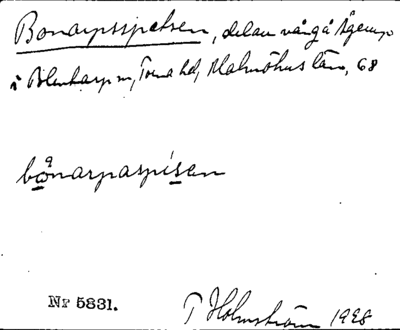 Bonarpsspetsen, delar väng å Ägor
i Blentarp sn, Torna hd, Malmöhus län, 68
å
bo̲narpaspísa̲n
Nr 5831.
T Holmström 1928